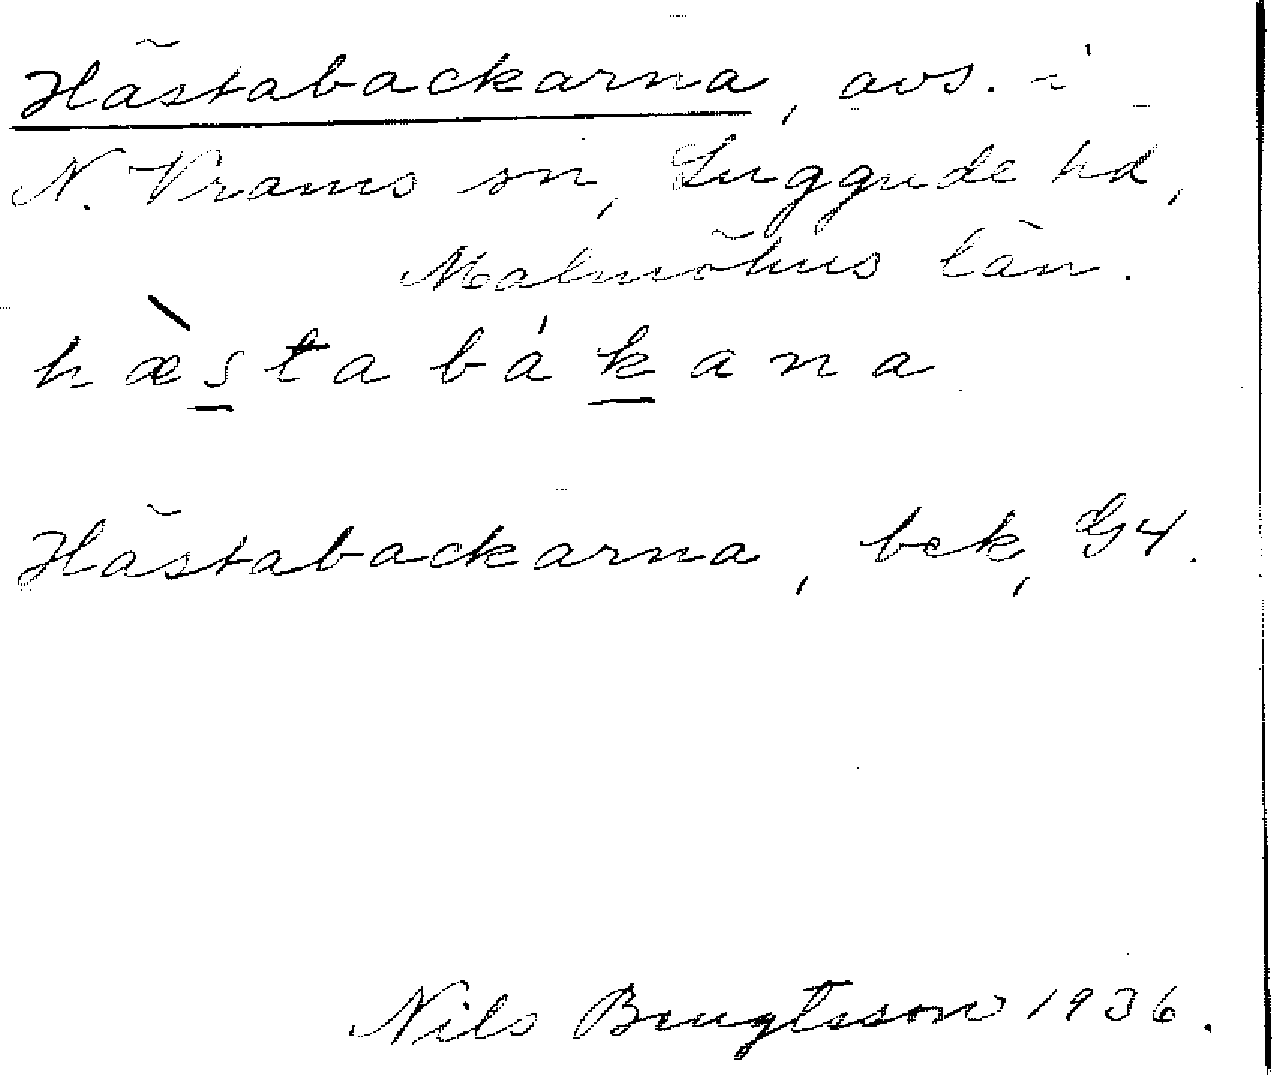 Hästabackarna, avs. i
N. Vrams sn, Luggude hd,
Malmöhus län.
hæ̀stabákana
Hästabackarna, bek, G4.
Nils Bengtsson 1936.